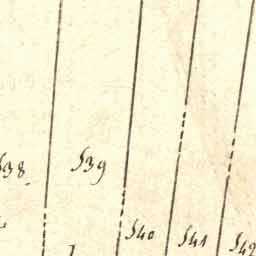 538.
539
540
541
542